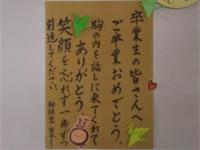 卒業生の皆さんへ
ご卒業おめでとう。
胸の内を話しに来てくれて
ありがとう。
笑顔を忘れず一歩ずつ
前進してください。